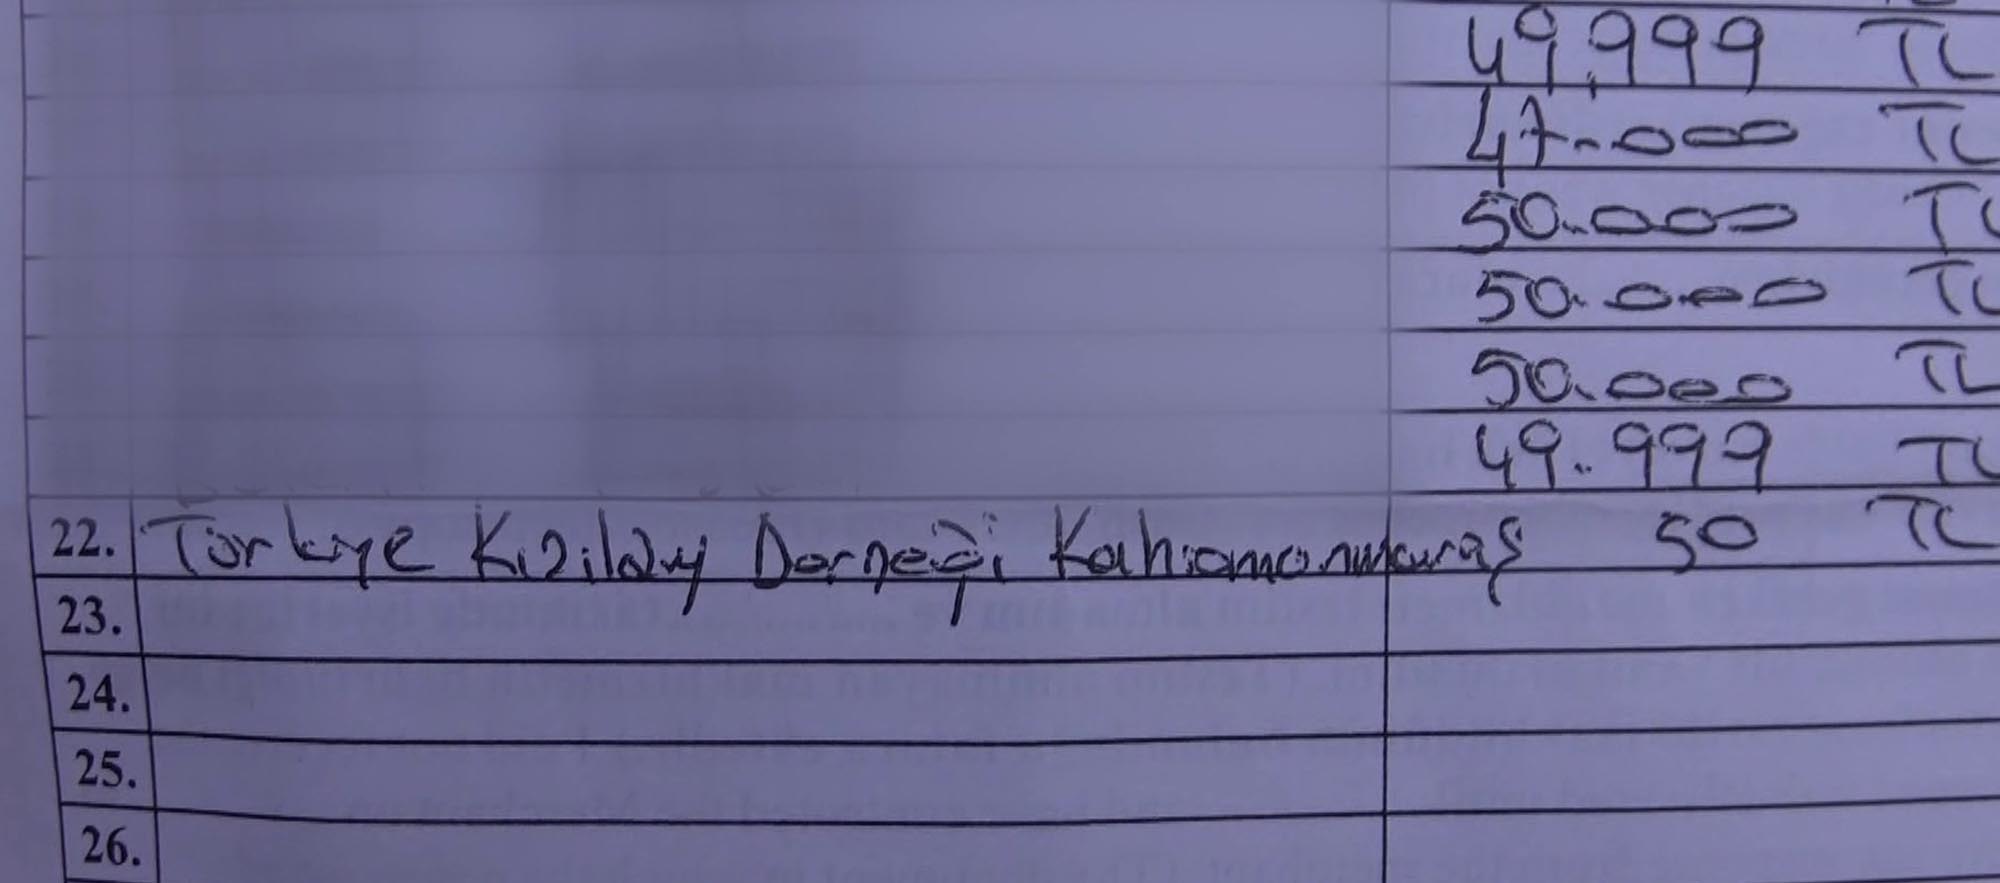 49.999 TL
47.000 TL
50.000 TL
50.000 TL
50.000 TL
49.999 TL
22. Türkiye Kızılay Derneği Kahramanmaraş 50 TL
23.
24.
25.
26.